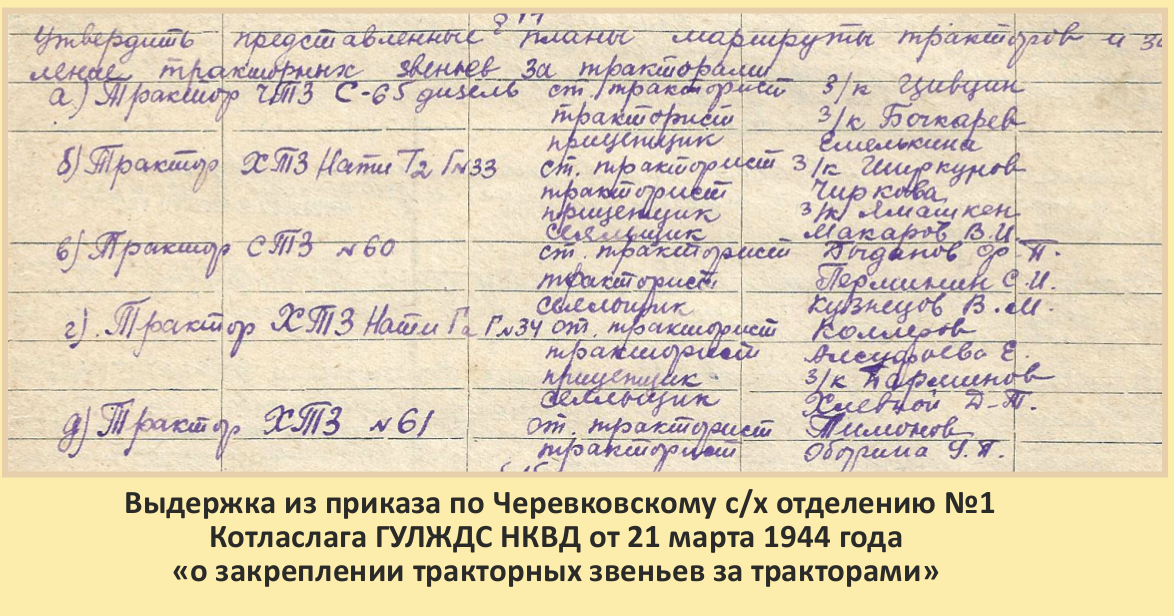 § 14
Утвердить представленные планы маршруты тракторов и
ление тракторных звеньев за тракторами
а) Трактор ЧТЗ С-65 дизель ст. тракторист з/к Цивцин
тракторист з/к Бочкарев
прицепщик Емелькина
б) Трактор ХТЗ Нати Т2Г №33 ст. тракторист з/к Ширкунов
тракторист Чиркова
прицепщик з/к Ямашкен
сеяльщик Макаров В.И.
в) Трактор СТЗ №60 ст. тракторист Быданов Ф.П.
тракторист Перминин С.И.
сеяльщик Кузнецов В.М.
г). Трактор ХТЗ Нати Г №34 ст. тракторист
тракторист Е.
прицепщик з/к Парминов
сеяльщик Хлевной Д-Т.
д) Трактор ХТЗ №61 ст. тракторист Тимонов
тракторист
Выдержка из приказа по Черевковскому с/х отделению №1
Котласлага ГУЛЖДС НКВД от 21 марта 1944 года
«о закреплении тракторных звеньев за тракторами»